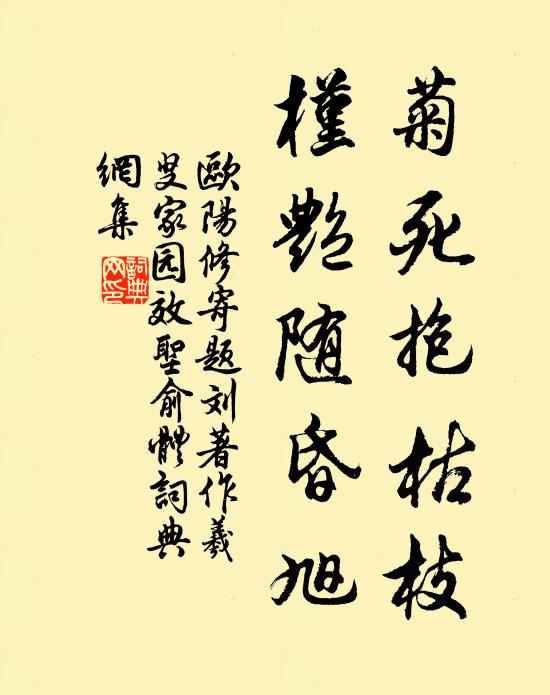 菊死抱枯枝
槿艷随昏旭
歐陽修寄題刘著作羲
叟家园效聖俞體詞典
網集
詞典网印